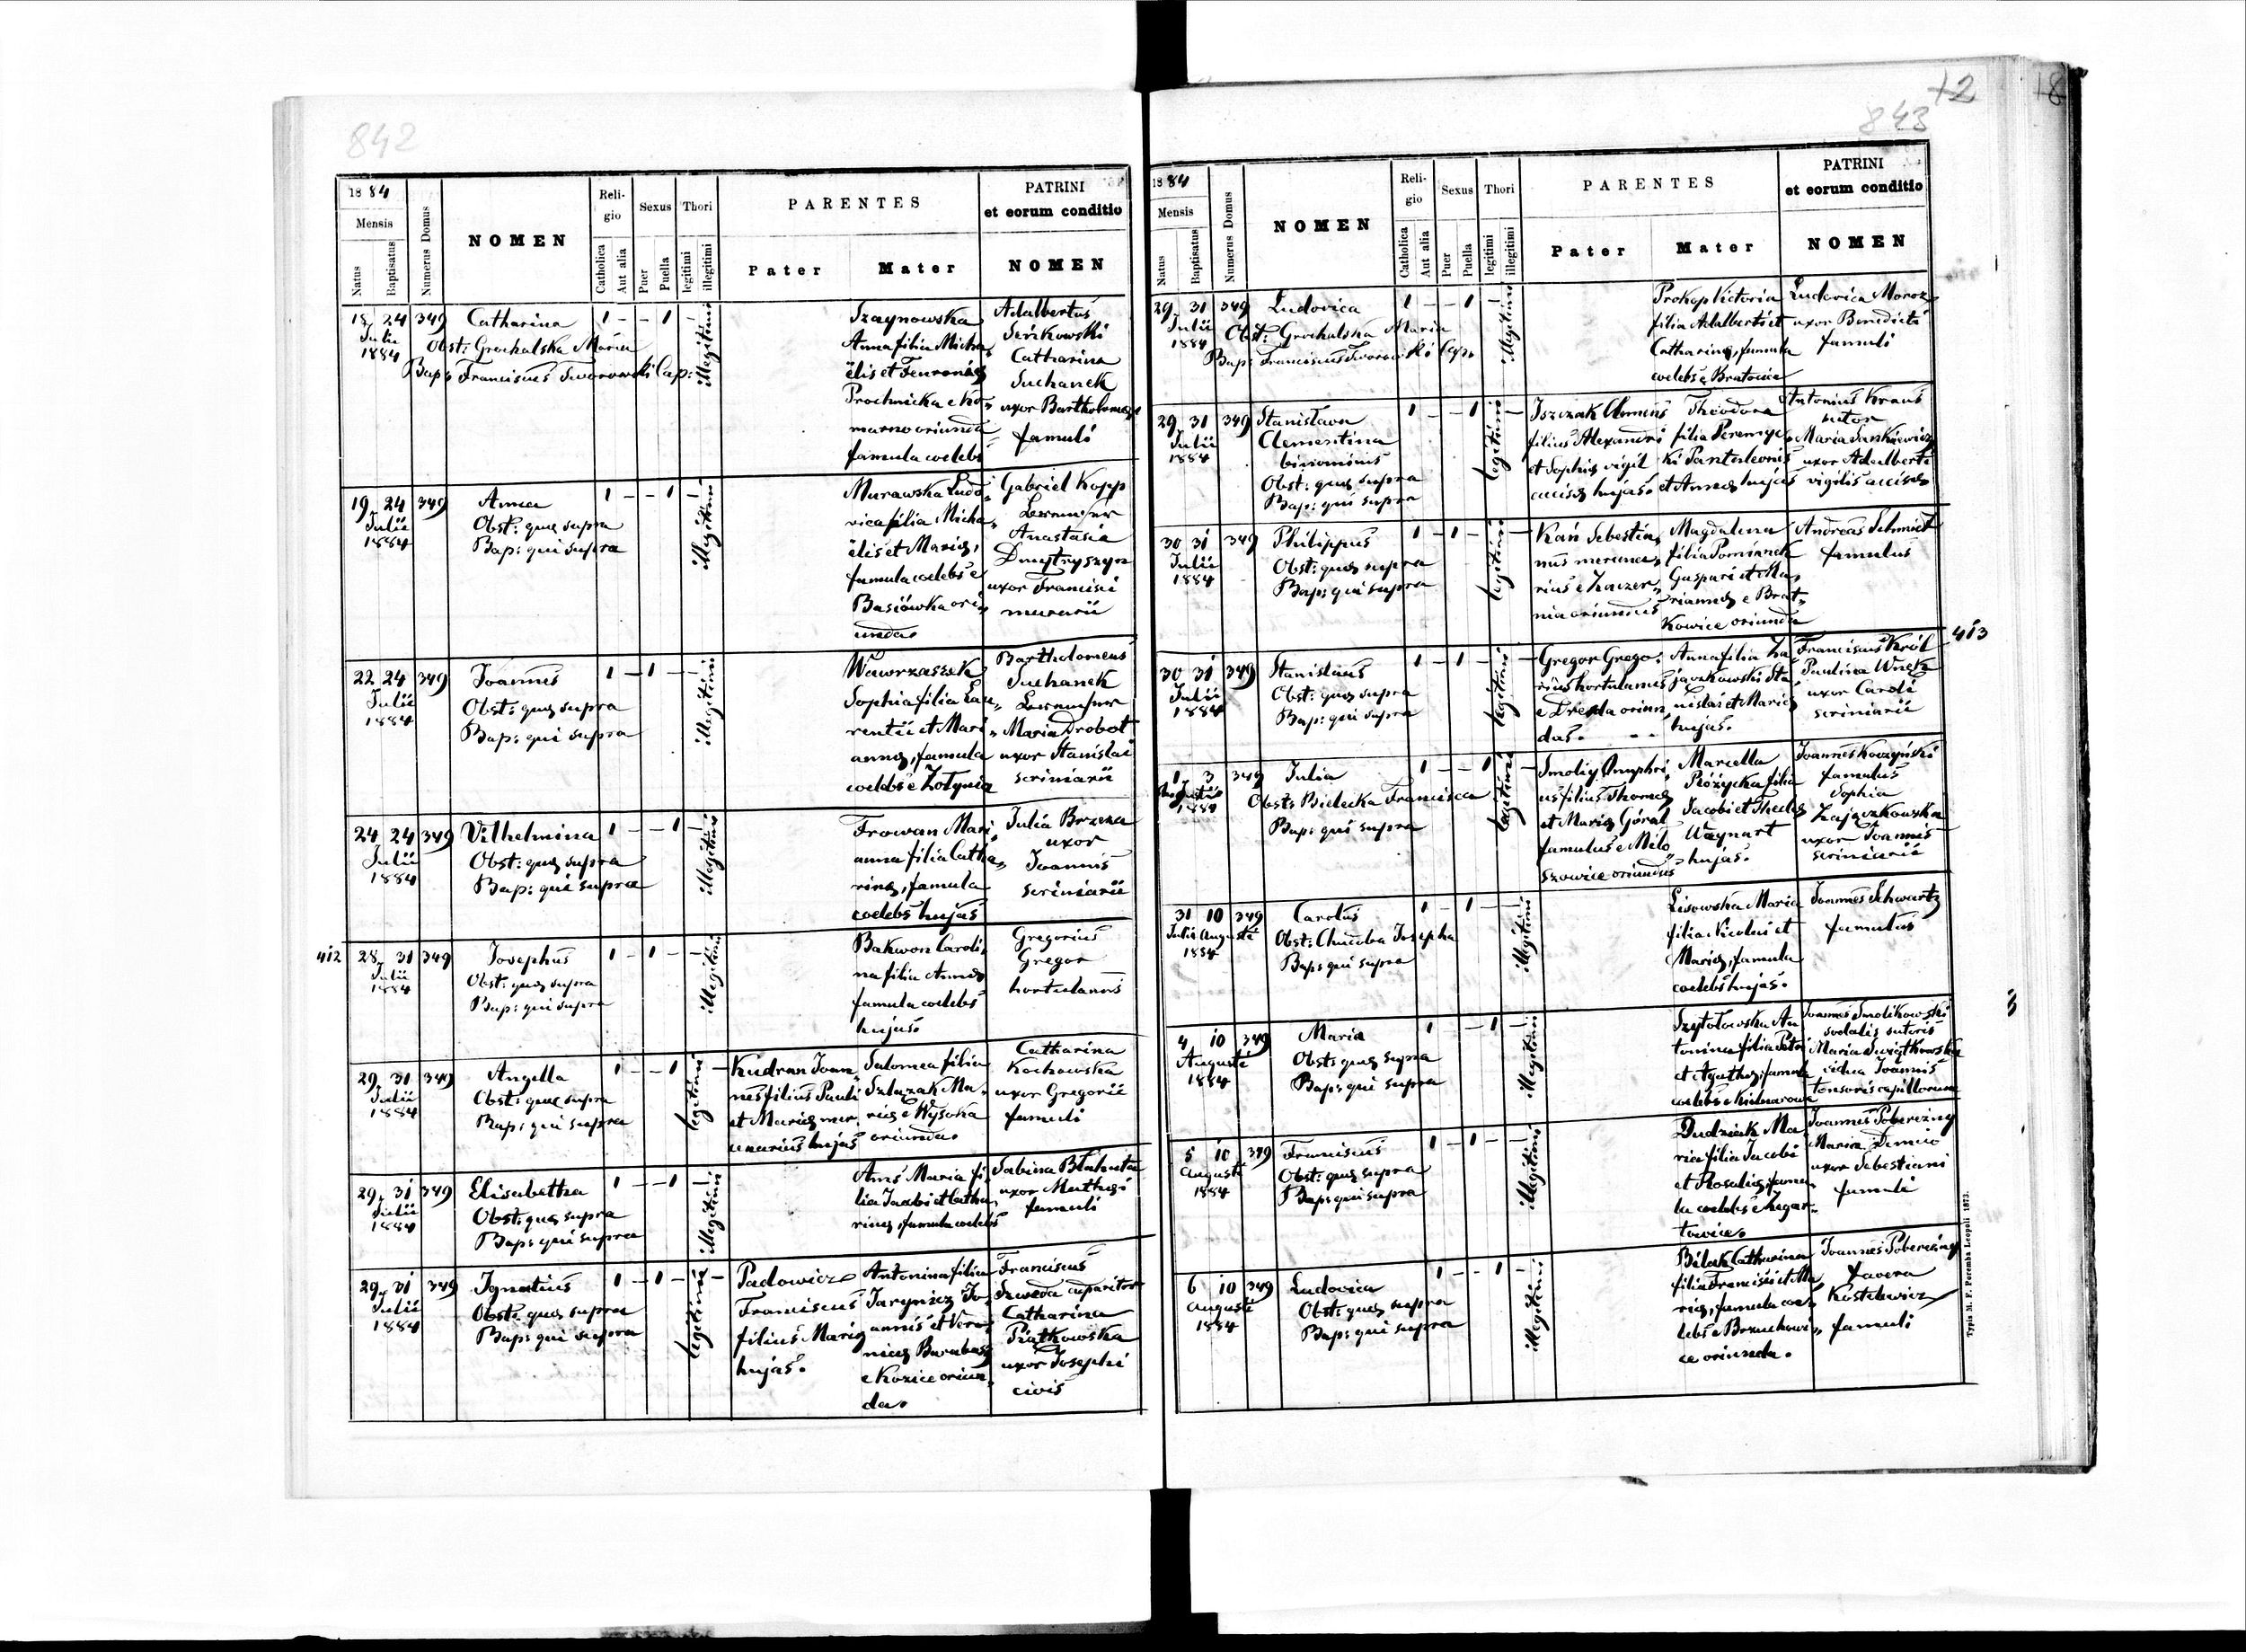 842
18 84
Mensis
Natus
Baptisatus
Numerus Domus
NOMEN
Religio
Catholica
Aut alia
Sexus
Puer
Puella
Thori
legitimi
illegitimi
PARENTES
Pater
Mater
PATRINI
et eorum conditio
NOMEN
18 24 349 Catharina 1 - - 1 -
Julii
1884
Obst: Grochalska Maria
Bap: Franciscus Sworowski Cap:
illegitimi
Szaynowska
Anna filia Micha„
ëlis et
Prochnicka e Ko„
marno oriunda
famula coelebs
Adalbertus
Serkowski
Catharina
Suchanek
uxor Bartholomaei
famuli
19 24 349 Anna 1 - - 1 -
Julii
1884
Obst: quae supra
Bap: qui supra
illegitimi
Murawska Ludo„
vica filia Micha„
ëlis et Mariae,
famula coelebs e
Basiówka ori„
unda.
Gabriel Kopp
Anastasia
Dmytryszyn
uxor Francisci
murarii
22 24 349 Joannes 1 - 1 - -
Julii
1884
Obst: quae supra
Bap: qui supra
illegitimi
Wawrzaszek
Sophia filia Lau„
rentii et Mari„
annae, famula
coelebs e Żołynia
Bartholomeus
Suchanek
Maria Drobot
uxor Stanislai
scriniarii
24 24 349 Vilhelmina 1 - - 1 -
Julii
1884
Obst: quae supra
Bap: qui supra
illegitimi
Frowan Mari„
anna filia Catha„
rinae, famula
coelebs hujas
Julia Brzena
uxor
Joannis
scriniarii
412 28 31 349 Josephus 1 - 1 - -
Julii
1884
Obst: quae supra
Bap: qui supra
illegitimi
Bakwon Caroli„
na filia Annae
famula coelebs
hujas.
Gregorius
Gregor
hortulanus
29 31 349 Angella 1 - - 1 -
Julii
1884
Obst: quae supra
Bap: qui supra
legitimi
Kudran Joan„
nes filius Pauli
et Mariae mer„
cenarius hujas
Salomea filia
Szlazak Ma„
riae e Wysoka
oriunda.
Catharina
Kochowska
uxor Gregorii
famuli
29 31 349 Elisabetha 1 - - 1 -
Julii
1884
Obst: quae supra
Bap: qui supra
illegitimi
Ams Maria fi„
lia Jacobi et Catha„
rinae, famula coelebs
Sabina Błahuta
uxor Mathaei
famuli
29 31 349 Ignatius 1 - 1 - -
Julii
1884
Obst: quae supra
Bap: qui supra
legitimi
Padowicz
Franciscus
filius Mariae
hujas.
Antonina filia
Jarynicz Jo„
annis et Vero„
nicae Barabasz
e Kozice oriun„
da.
Franciscus
Szweda apparitor
Catharina
Piątkowska
uxor Josephi
civis
843
12
18
18 84
Mensis
Natus
Baptisatus
Numerus Domus
NOMEN
Religio
Catholica
Aut alia
Sexus
Puer
Puella
Thori
legitimi
illegitimi
PARENTES
Pater
Mater
PATRINI
et eorum conditio
NOMEN
29 31 349 Ludovica 1 - - 1 -
Julii
1884
Obst: Grochalska Maria
Bap: Franciscus Sworowski Cap.
illegitimi
Prokop Victoria
filia Adalberti et
Catharinae, famula
coelebs e Bratowice
Ludovica Moroz
uxor Benedicti
famuli
29 31 349 Stanislava 1 - - 1 -
Julii
1884
Clementina
binominis
Obst: quae supra
Bap: qui supra
legitimi
Iszczak Clemens
filius Alexandri
et Sophiae vigil
accisae hujas.
Theodora
filia Peremyc„
ki Pantaleonis
et Annae hujas
Antonius Kraus
sutor
Maria Sankiewicz
uxor Adalberti
vigilis accisae
30 31 349 Philippus 1 - 1 - -
Julii
1884
Obst: quae supra
Bap: qui supra
legitimi
Kań Sebestia„
nus mercena„
rius e Zaczer„
nia oriundus
Magdalena
filia Pomianek
Gaspari et Ma„
riannae e Brat„
kowice oriunda
Andreas Schmidt
famulus
413
30 31 349 Stanislaus 1 - 1 - -
Julii
1884
Obst: quae supra
Bap: qui supra
legitimi
Gregor Grego„
rius hortulanus
e Dresda oriun„
dus.
Anna filia Za„
jączkowski Sta„
nislai et Mariae
hujas.
Franciscus Król
Paulina Wnęk
uxor Caroli
scriniarii
1 3 349 Julia 1 - - 1 -
Augusti
1884
Obst: Bielecka Francisca
Bap: qui supra
legitimi
Smoliy Onuphri„
us filius Thomae
et Mariae Góral
famulus e Miło„
szowice oriundus
Marcella
Różycka filia
Jacobi et Theclae
Waynart
hujas.
Joannes Koczyński
famulus
Sophia
Zajączkowska
uxor Joannis
scriniarii
31 10 349 Carolus 1 - 1 - -
Julii Augusti
1884
Obst: Chudoba Josepha
Bap: qui supra
illegitimi
Lisowska Maria
filia Nicolai et
Mariae, famula
coelebs hujas.
Joannes Schwartz
famulus
4 10 349 Maria 1 - - 1 -
Augusti
1884
Obst: quae supra
Bap: qui supra
illegitimi
Szytołowska An„
tonina filia Petri
et Agathae, famula
coelebs e
Joannes Smolikowski
sodalis sutoris
Maria Swiątkowska
vidua Joannis
tonsoris capillorum
5 10 349 Franciscus 1 - 1 - -
Augusti
1884
Obst: quae supra
Bap: qui supra
illegitimi
Dudziak Ma„
ria filia Jacobi
et Rosaliae, famu„
la coelebs e Żegar„
towice.
Joannes Pobereżny
Maria
uxor Sebestiani
famuli
6 10 349 Ludovica 1 - - 1 -
Augusti
1884
Obst: quae supra
Bap: qui supra
illegitimi
Bilak Catharina
filia Francisci et Ma„
riae, famula coe„
lebs e Brzuchowi„
ce oriunda.
Joannes Pobereżny
Xavera
Kostekwicz
famuli
Typis M. F. Poremba Leopoli 1873.